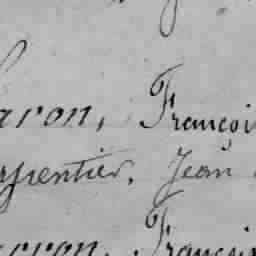 aron, Françoi
rpentier. Jean
rron, François